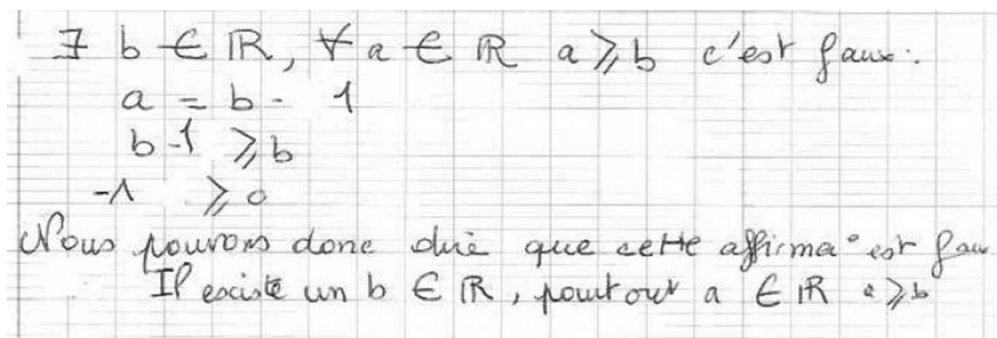 ∃ b ∈ ℝ, ∀ a ∈ ℝ a ⩾ b c'est faux.
a = b - 1
b-1 ⩾ b
-1 ⩾ 0
Nous pouvons donc dire que cette affirma° est fau
Il existe un b ∈ ℝ, pour tout a ∈ ℝ a ⩾ b